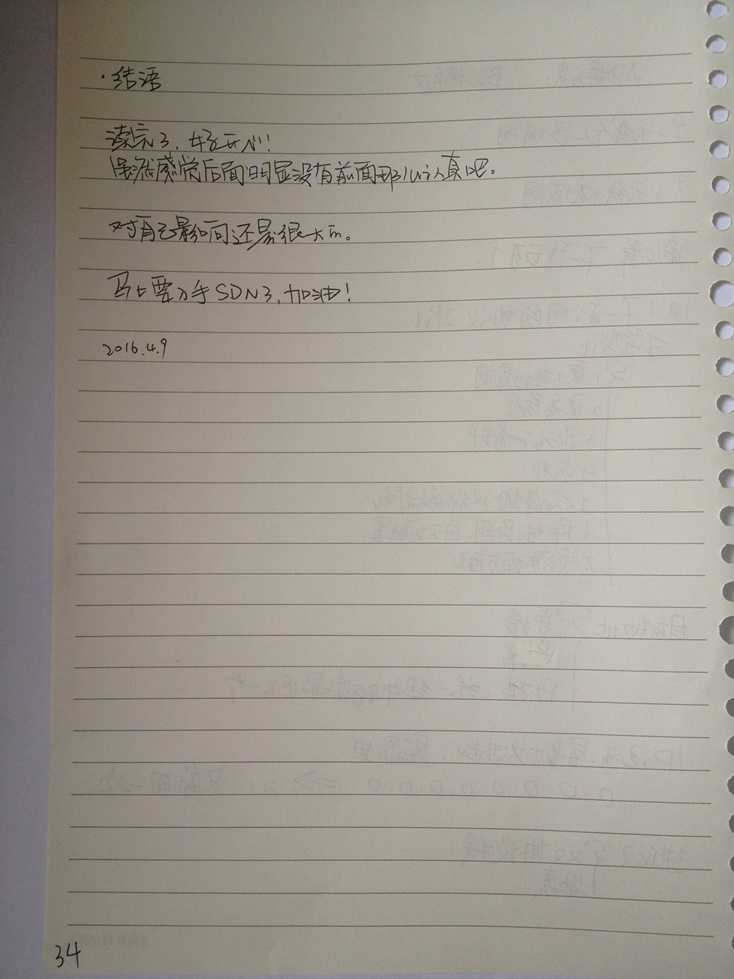 ·结语
读完了,好开心!
虽然感觉后面明显没有前面那么认真吧。
对自己影响还是很大的。
马上要入手SDN了,加油!
2016.4.9
34